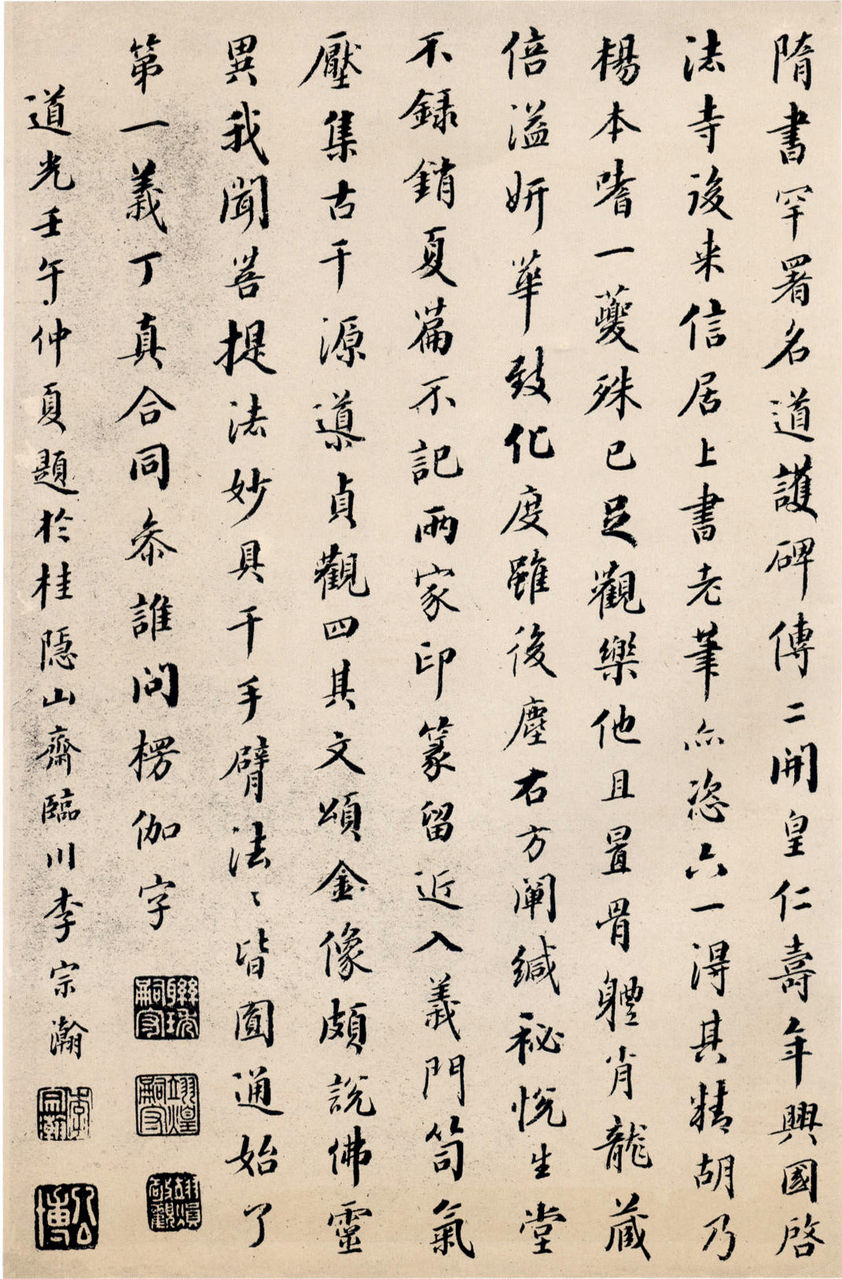 隋書罕署名道護碑傳二開皇仁壽年興國啓
法寺後来信居上書老筆亦恣六一得其精胡乃
楊本嗜一夔殊已足觀樂他且置骨體肖龍藏
倍溢妍華致化度雖後塵右方闡緘秘悅生堂
不録銷夏篇不記兩家印篆留近入義門笥氣
壓集古千源導貞觀四其文頌金像頗說佛靈
異我聞菩提法妙具千手臂法〻皆圓通始了
第一義丁真合同叅誰問楞伽字
聯琇嗣守
翊煌嗣守
道光壬午仲夏題於桂隱山齋臨川李宗瀚
李宗瀚
公博